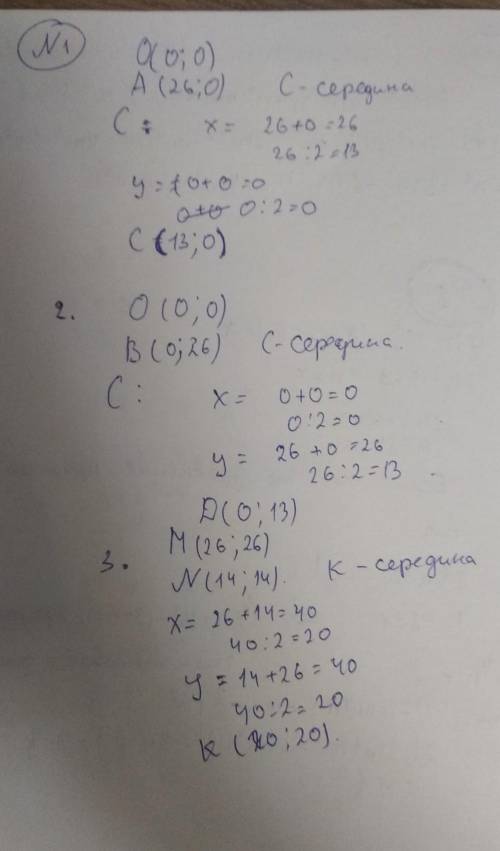 N1
O(0;0)
A(26;0) C-середина
C: x= 26+0=26
26:2=13
y=0+0=0
0+0 0:2=0
C(13;0)
2. O(0;0)
B(0;26) C-середина.
C: x= 0+0=0
0:2=0
y= 26+0=26
26:2=13
D(0;13)
M(26;26)
3. N(14;14). K-середина
x= 26+14=40
40:2=20
y=14+26=40
40:2=20
K(20;20).